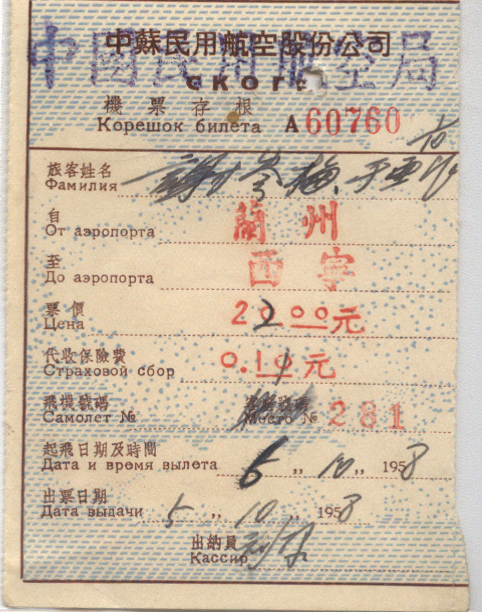 中蘇民用航空股份公司
中國民用航空局
СКОГА
機票存根
Корешок билета А 60760
旅客姓名
Фамилия
自 蘭州
От аэропорта
至 西寧
До аэропорта
票價 22.00元
Цена
代收保險費 0.11元
Страховой сбор
飛機號碼
Самолет № Место № 281
起飛日期及時間
Дата и время вылета 6 „ 10 „ 1958
出票日期
Дата выдачи 5 „ 10 „ 1958
出納員
Кассир